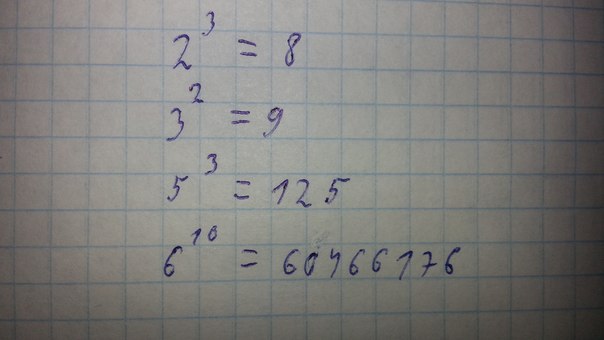 2³ = 8
3² = 9
5³ = 125
6¹⁰ = 60466176